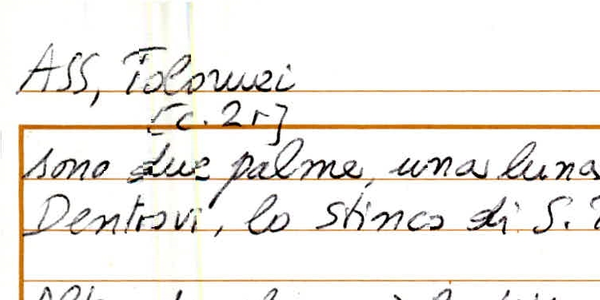 ASS, Tolomei
[c. 2r]
sono due palme, una luna
Dentrovi, lo stinco di S.